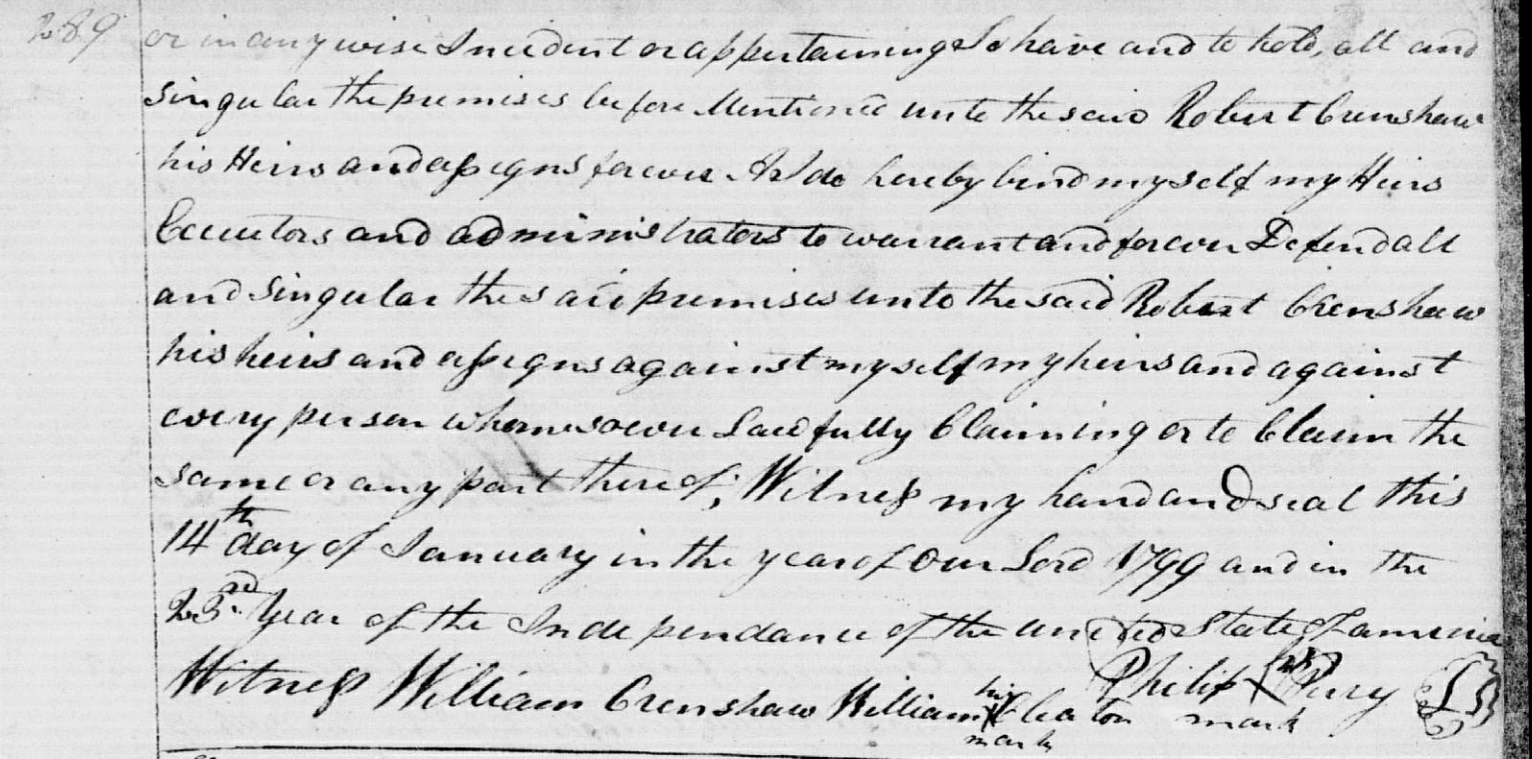 289 or in any wise Incident or appertaining To have and to hold, all and
singular the premises before Mentioned unto the said Robert Crenshaw
his Heirs and assigns forever & I do hereby bind myself my Heirs
Executors and administrators to warrant and forever Defend all
and Singular the said premises unto the said Robert Crenshaw
his heirs and assigns against myself my heirs and against
every person whomsoever Lawfully Claiming or to Claim the
same or any part thereof; Witness my hand and seal this
14th day of January in the year of Our Lord 1799 and in the
23rd Year of the Independance of the united State of america
Witness William Crenshaw William his X Cleaton mark Philip his X Perry mark LS